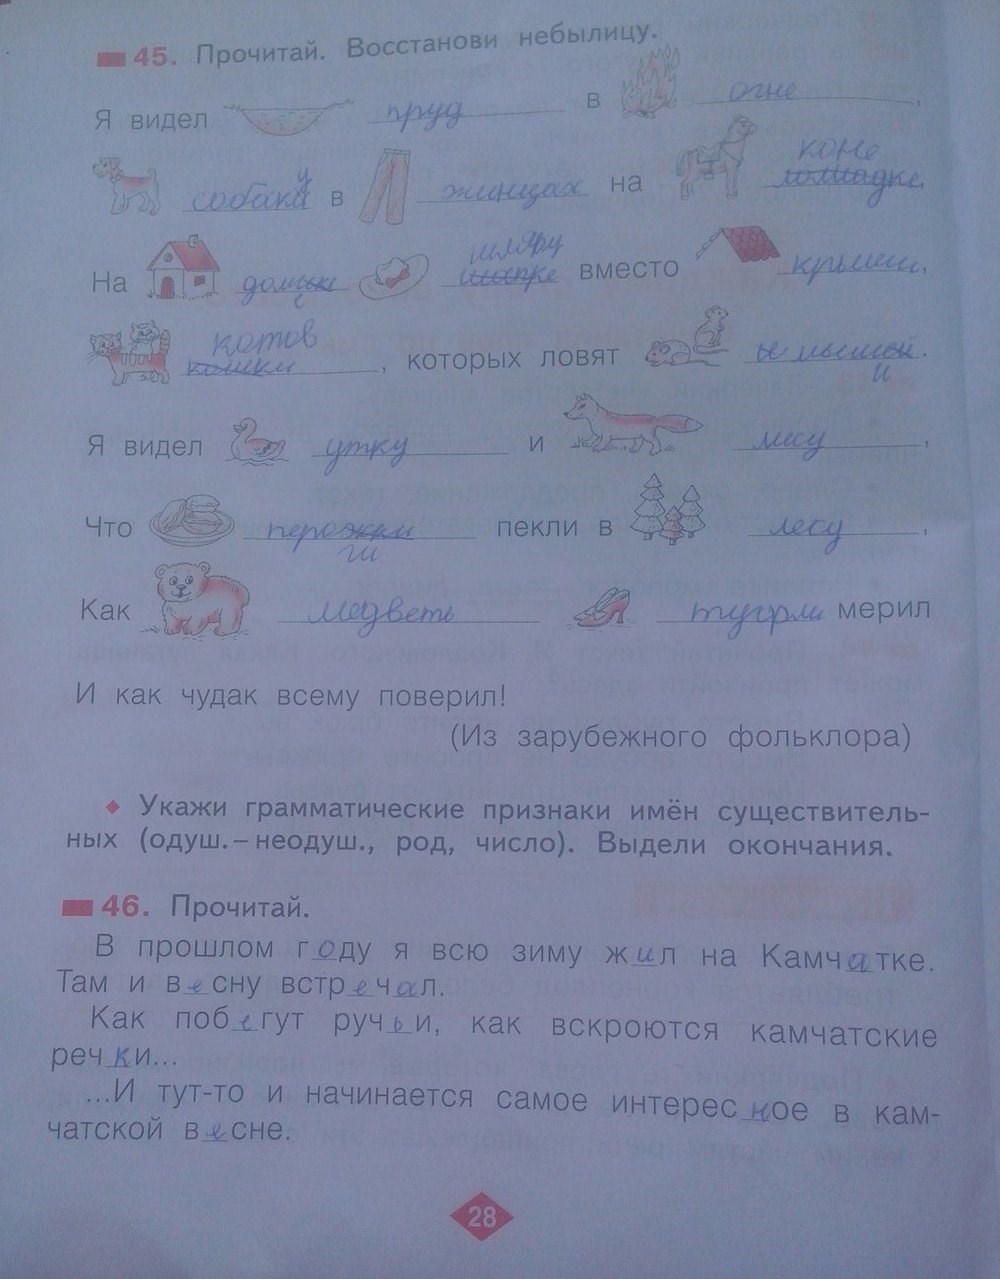 45. Прочитай. Восстанови небылицу.
Я видел пруд в огне,
собаку в жинцах на коне лошадке.
На доме шляру шапке вместо крыши,
котов кошки, которых ловят мыши.
Я видел утку и лису,
Что перожки ги пекли в лесу,
Как медветь туфли мерил
И как чудак всему поверил!
(Из зарубежного фольклора)
◆ Укажи грамматические признаки имён существитель-
ных (одуш. – неодуш., род, число). Выдели окончания.
46. Прочитай.
В прошлом году я всю зиму жил на Камчатке.
Там и весну встречал.
Как побегут ручьи, как вскроются камчатские
речки...
...И тут-то и начинается самое интересное в кам-
чатской весне.
28